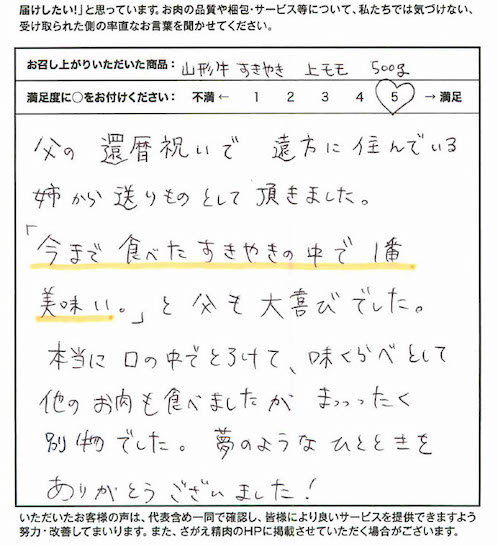 届けしたい!」と思っています。お肉の品質や梱包・サービス等について、私たちでは気づけない、
受け取られた側の率直なお言葉を聞かせてください。
お召し上がりいただいた商品： 山形牛 すきやき 上モモ 500g
満足度に○をお付けください： 不満 ← 1 2 3 4 5 → 満足
父の 還暦祝いで 遠方に 住んでいる
姉から 送りものとして 頂きました。
「今まで 食べた すきやきの中で 1番
美味い。」と 父も 大喜びでした。
本当に 口の中でとろけて、味くらべとして
他の お肉も食べましたが まっったく
別物でした。夢のような ひとときを
ありがとうございました!
いただいたお客様の声は、代表含め一同で確認し、皆様により良いサービスを提供できますよう
努力・改善してまいります。また、さがえ精肉のHPに掲載させていただく場合がございます。